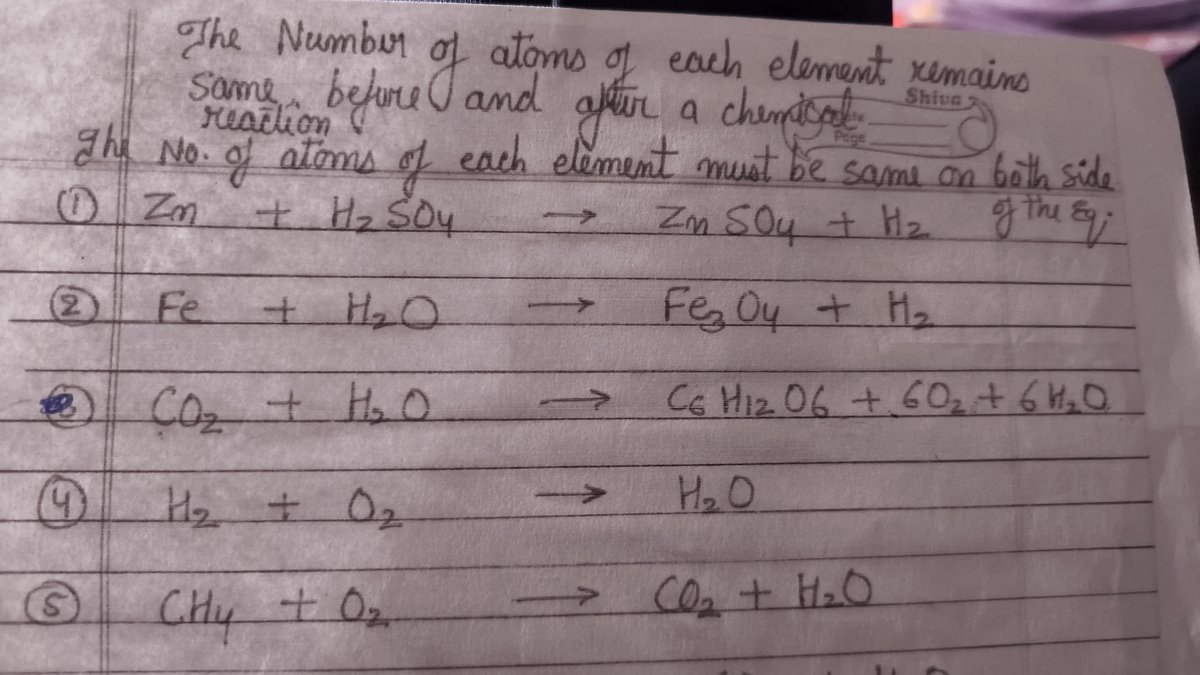 The Number of atoms of each element remains
Same before and after a chemical
reaction
Shiva
Page
The No. of atoms of each element must be same on both side
of the Eq:
① Zn + H₂SO₄ → ZnSO₄ + H₂
② Fe + H₂O → Fe₃O₄ + H₂
③ CO₂ + H₂O → C6 H12 O6 + 6O₂ + 6H₂O
④ H₂ + O₂ → H₂O
⑤ CH₄ + O₂ → CO₂ + H₂O